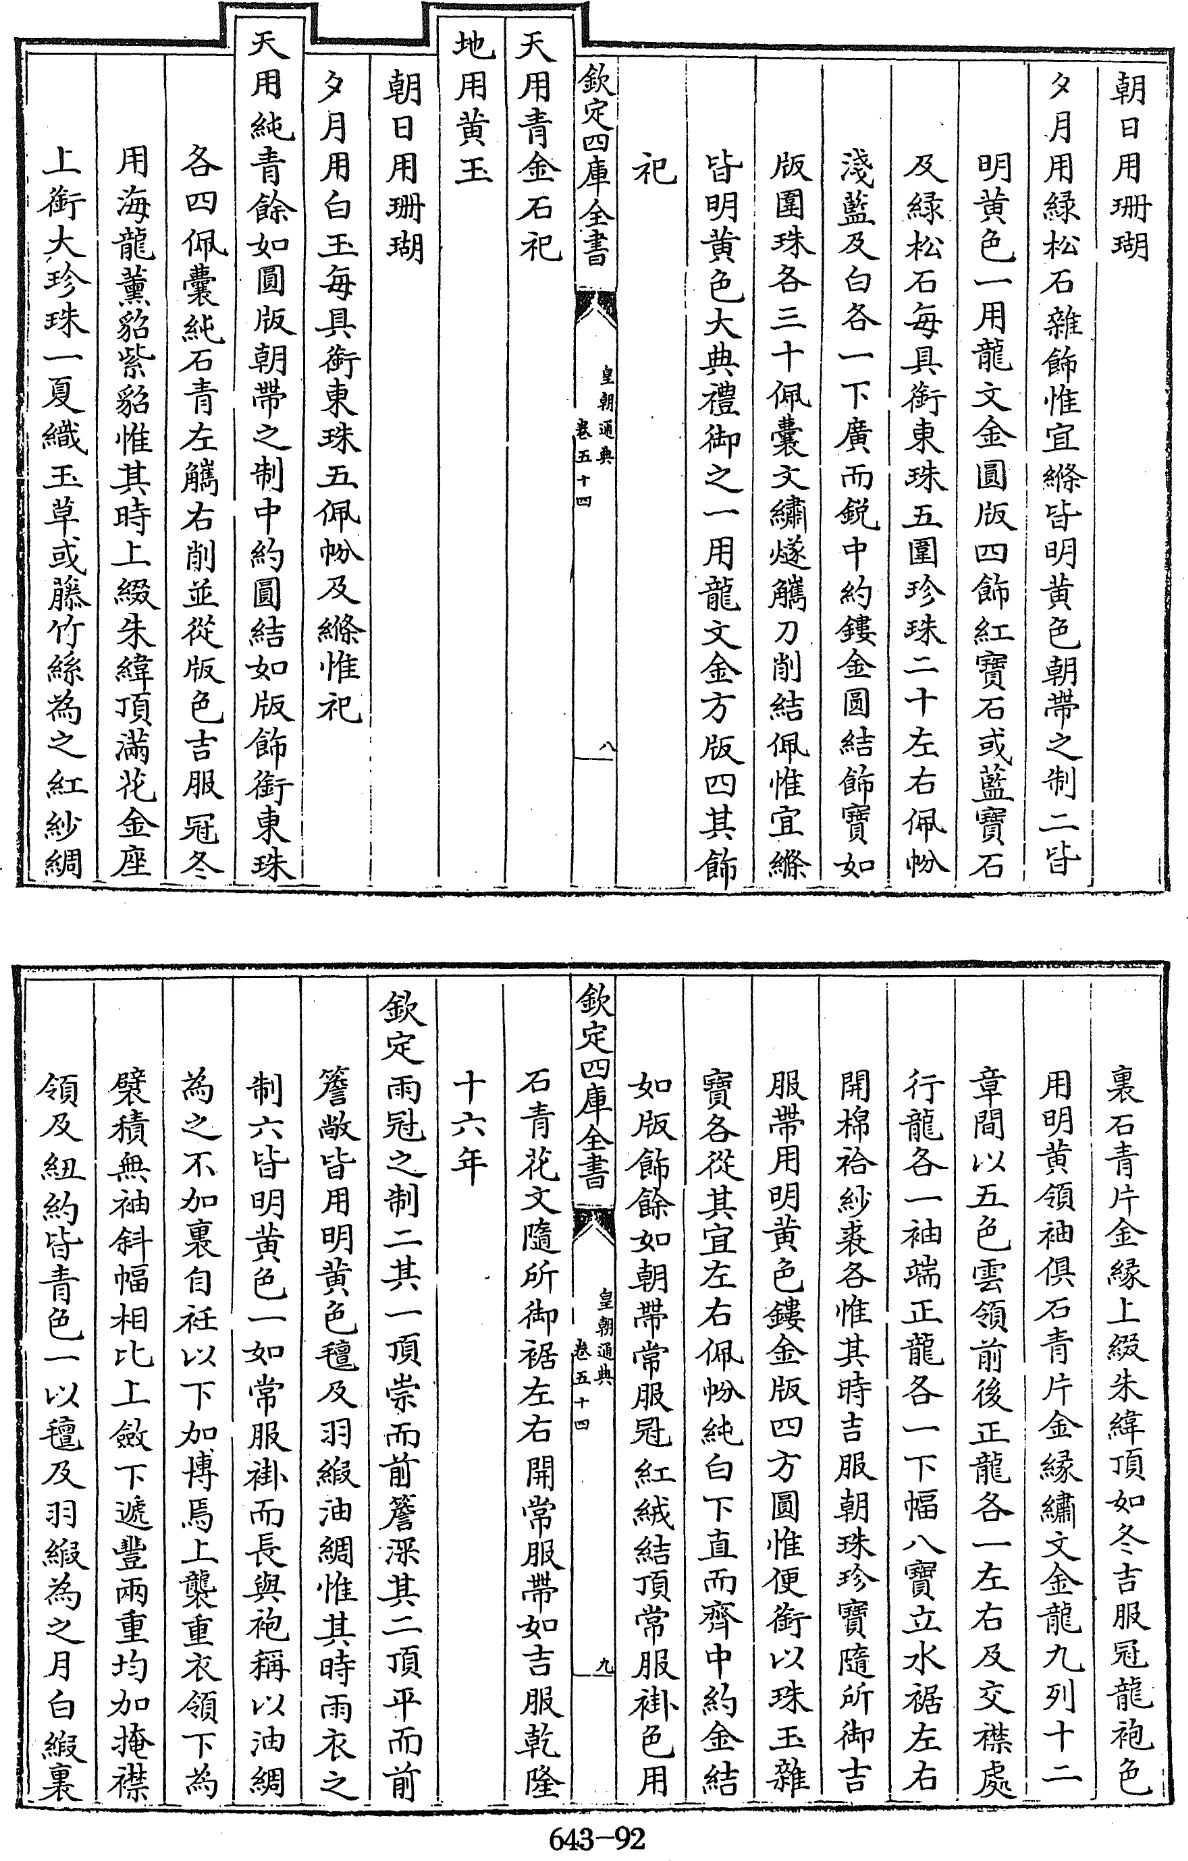 朝日用珊瑚
夕月用緑松石雜飾惟宜縧皆明黄色朝帶之制二皆
明黄色一用龍文金圓版四飾紅寶石或藍寶石
及緑松石每具銜東珠五圍珍珠二十左右佩帉
淺藍及白各一下廣而鋭中約鏤金圓結飾寶如
版圍珠各三十佩囊文繡燧觿刀削結佩惟宜縧
皆明黄色大典禮御之一用龍文金方版四其飾
祀
欽定四庫全書
皇朝通典
卷五十四
八
天用青金石祀
地用黄玉
朝日用珊瑚
夕月用白玉每具銜東珠五佩帉及縧惟祀
天用純青餘如圓版朝帶之制中約圓結如版飾銜東珠
各四佩囊純石青左觿右削並從版色吉服冠冬
用海龍薰貂紫貂惟其時上綴朱緯頂滿花金座
上銜大珍珠一夏織玉草或藤竹絲為之紅紗綢
裏石青片金縁上綴朱緯頂如冬吉服冠龍袍色
用明黄領袖俱石青片金縁繡文金龍九列十二
章間以五色雲領前後正龍各一左右及交襟處
行龍各一袖端正龍各一下幅八寶立水裾左右
開棉袷紗裘各惟其時吉服朝珠珍寶隨所御吉
服帶用明黄色鏤金版四方圓惟便銜以珠玉雜
寶各從其宜左右佩帉純白下直而齊中約金結
如版飾餘如朝帶常服冠紅絨結頂常服褂色用
欽定四庫全書
皇朝通典
卷五十四
九
石青花文隨所御裾左右開常服帶如吉服乾隆
十六年
欽定雨冠之制二其一頂崇而前簷深其二頂平而前
簷敞皆用明黄色氊及羽緞油綢惟其時雨衣之
制六皆明黄色一如常服褂而長與袍稱以油綢
為之不加裏自衽以下加博焉上襲重衣領下為
襞積無袖斜幅相比上斂下遞豐兩重均加掩襟
領及紐約皆青色一以氊及羽緞為之月白緞裏
643-92